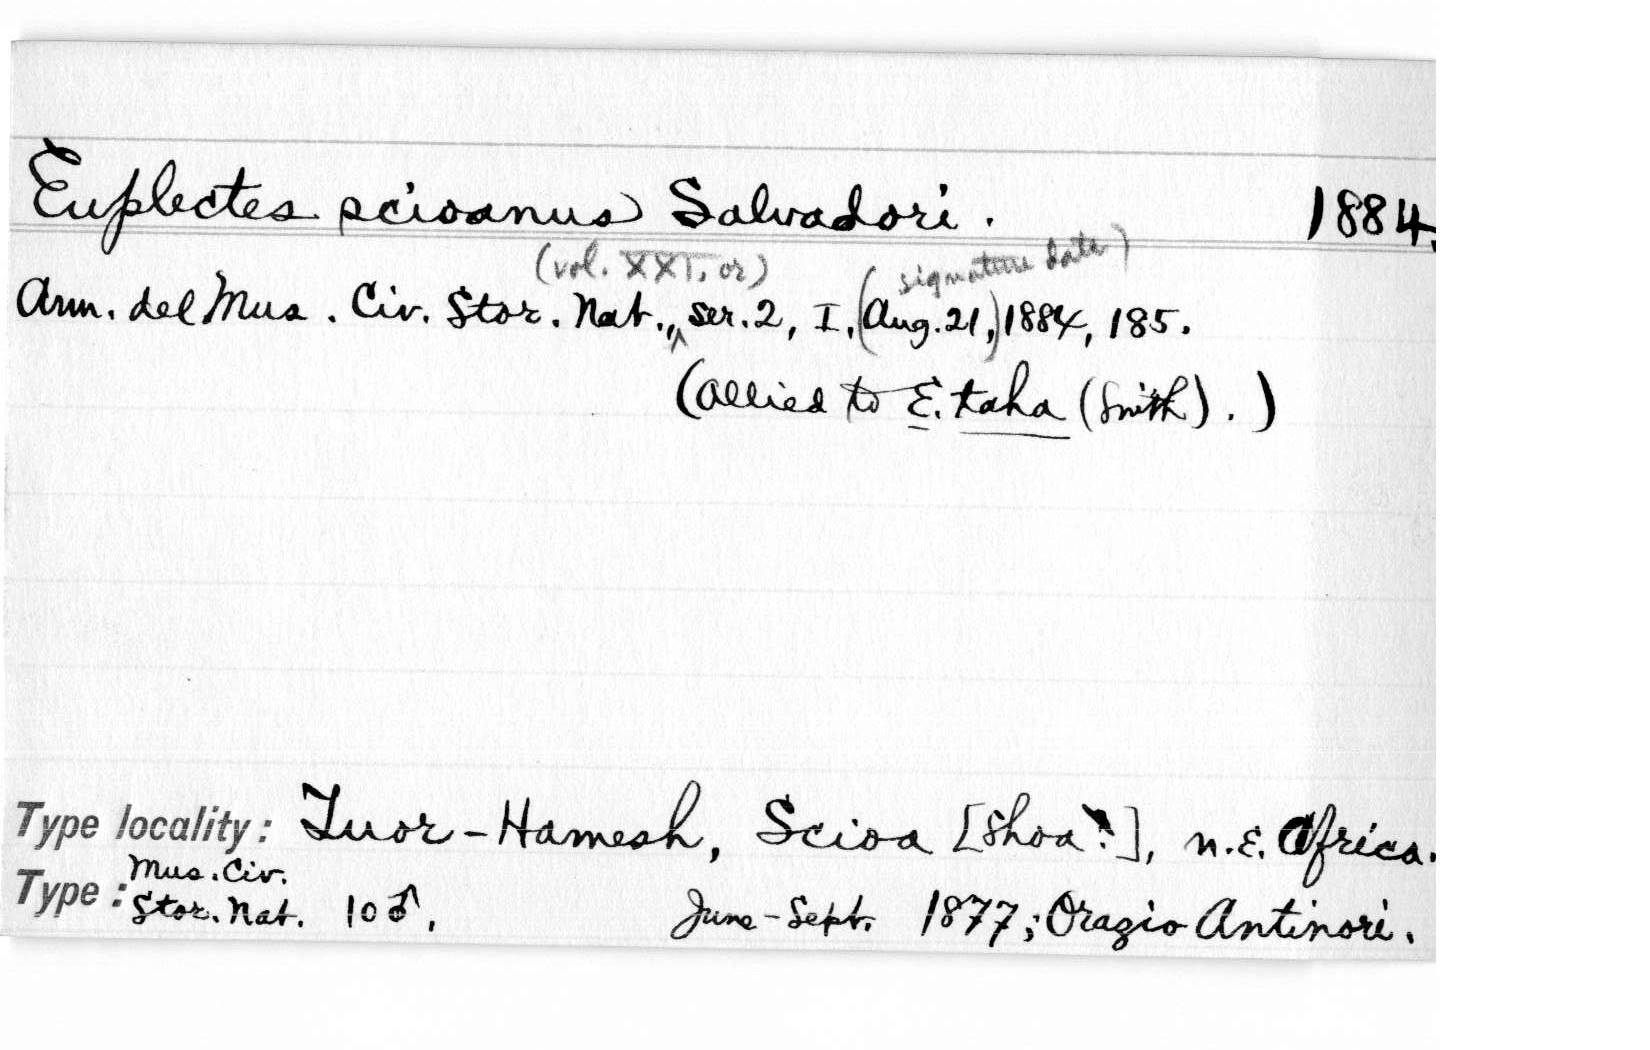 Euplectes scioanus Salvadori. 1884.
(vol. XXI, or) (signature date)
Ann. del Mus. Civ. Stor. Nat., ser. 2, I, (Aug. 21,) 1884, 185.
(Allied to E. taha (Smith).)
Type locality: Tuor-Hamesh, Scioa [Shoa?], n.E. Africa.
Mus. Civ.
Type: Stor. Nat. 10 ♂, June-Sept. 1877; Orazio Antinori.